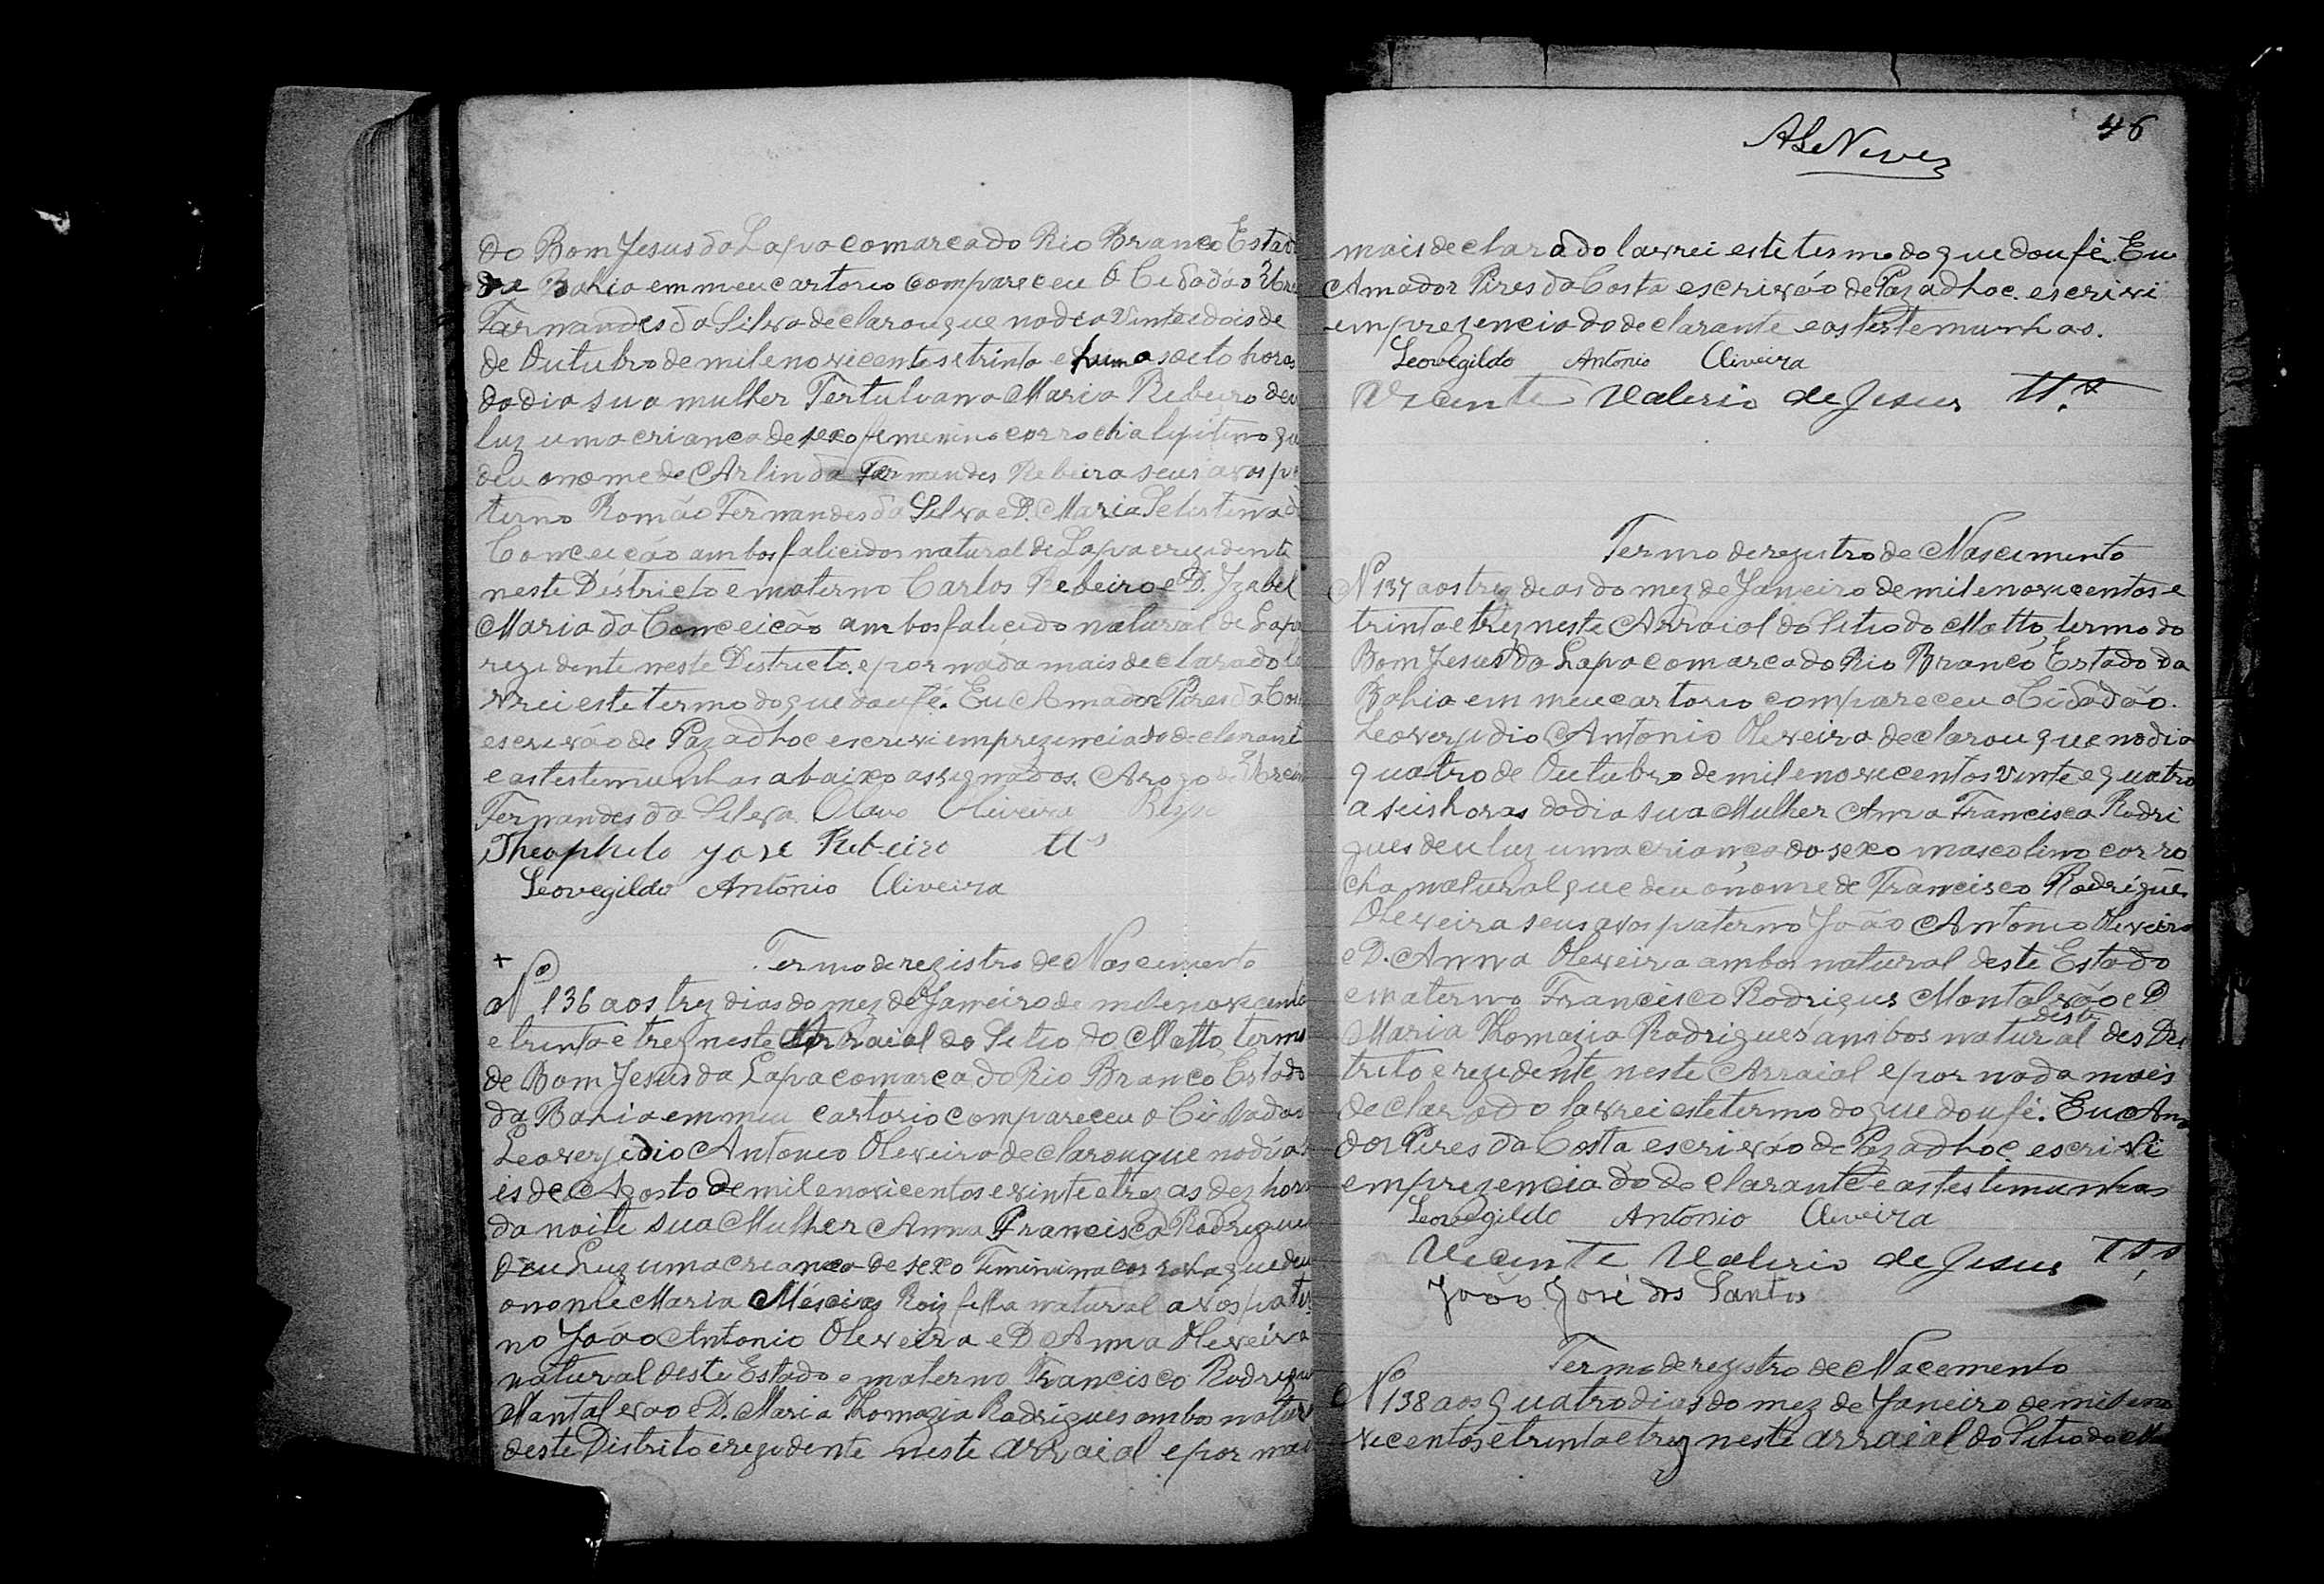 do Bom Jesus da Lapa comarca do Rio Branco Estado
da Bahia em meu cartorio compareceu O Cidadão
Fernandes da Silva declarou que no dia vinte e dois de
de Outubro de mil e novicentos e trinta e hum as oeto horas
do dia sua mulher Tertulvana Maria Ribeiro deu
luz uma crianca de sexo femenino cor rocha ligitimo que
deu o nome de Arlinda Fernandes Rebeira seus avos pa
terno Romão Fernandes da Silva e D. Maria Selestina da
Conceicão ambos falicidos natural de Lapa e rezidente
neste Districto e materno Carlos Rebeiro e D. Yzabel
Maria da Conceicão ambos falicido natural de Lapa
rezidente neste Districto. e por nada mais declarado la
vrei este termo do que dou fé. Eu Amador Pires da Cos
escrivão de Paz adhoc escrevi em prezencia do declarant
e as testemunhas abaixo assignados. Arogo de
Fernandes da Silva. Olavo Oliveira
Theophilo José Ribeiro tts
Leovegildo Antônio Oliveira
+ Termo de registro de Nascimento
Nº 136 aos trez dias do mez de Janeiro de mil e novicento
e trinta e trez neste Arraial do Sitio do Matto, termo
de Bom Jesus da Lapa comarca do Rio Branco, Estado
da Bahia em meu cartorio compareceu o Cidadão
Leovergidio Antonio Oleveira declarou que no dia
is de Agosto de mil e novicentos e vinte e trez as dez hora
da noite sua Mulher Anna Francisca Rodrigues
deu Luz uma creanca de sexo Feminina cor rocha que deu
o nome Maria Méscias Roiz filha natural avos pater
no João Antonio Oleveira e D. Anna Oleveira
natural deste Estado e materno Francisco Rodrigue
Mantalvao e D. Maria Thomazia Rodrigues ambos natur
deste Distrito e rezidente neste arraial e por mai
ALNeves
46
mais declarado lavrei este termo do que dou fé. Eu
Amador Pires da Costa escrivão de Paz adhoc. escrivi
em prezencia do declarante e as testemunhas.
Leovegildo Antonio Oliveira
Vicente Valerio de Jesus
Termo de registro de Nascimento
Nº 137 aos trez dias do mez de Janeiro de mil e novicentos e
trinta e trez neste Arraial do Sitio do Matto, termo do
Bom Jesus da Lapa comarca do Rio Branco, Estado da
Bahia em meu cartorio compareceu o Cidadão.
Leovergidio Antonio Oleveira declarou que no dia
quatro de Outubro de mil e novicentos vinte e quatro
a seis horas do dia sua Mulher Anna Francisca Rodri
gues deu luz uma criança do sexo mascolino cor ro
cha natural que deu o nome de Francisco Rodrigue
Oleveira seus avos paterno João Antonio Oleveira
e D. Anna Oleveira ambos natural deste Estado
e materno Francisco Rodrigues Montalvão e D
Maria Thomazia Rodrigues ambos natural deste des Dis
trito e rezidente neste Arraial e por nada mais
declarado lavrei este termo do que dou fé. Eu Ama
dor Pires da Costa escrivão de Paz adhoc escrivi
em prezencia do declarante e as testimunhas
Leovegildo Antonio Oliveira
Vicente Valerio de Jesus
João José dos Santos
Termo de registro de Nacemento
Nº 138 aos quatro dias do mez de Janeiro de mil e no
vicentos e trinta e trez neste arraial do Sitio do Ma